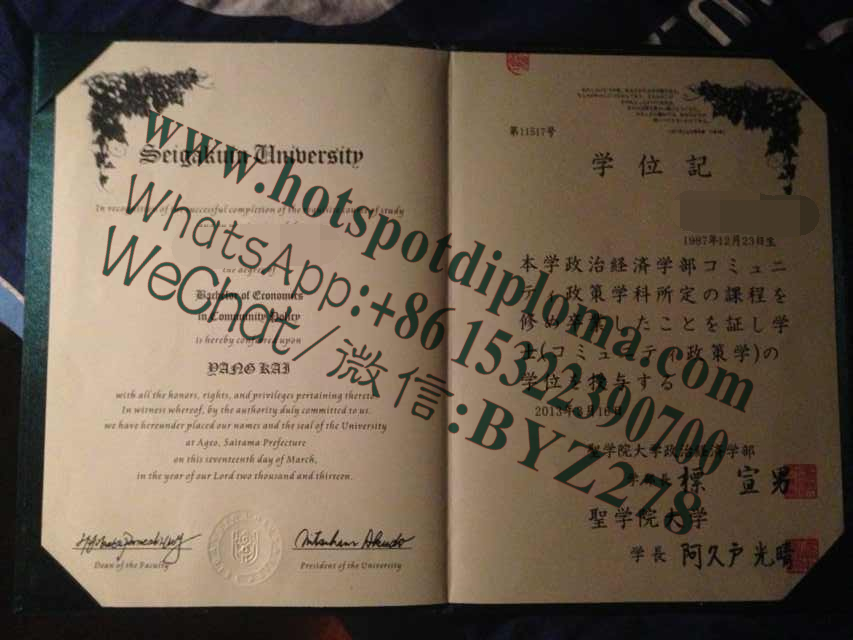 Seigakuin University
In recognition of the successful completion of the course of study
the degree of
Bachelor of Economics
in Community Policy
is hereby conferred upon
YANG KAI
with all the honors, rights, and privileges pertaining thereto.
In witness whereof, by the authority duly committed to us.
we have hereunder placed our names and the seal of the University
at Ageo, Saitama Prefecture
on this seventeenth day of March,
in the year of our Lord two thousand and thirteen.
Dean of the Faculty
President of the University
第11517号
学位記
1987年12月23日生
本学政治経済学部コミュニ
ティ政策学科所定の課程を
修め卒業したことを証し学
士(コミュニティ政策学)の
学位を授与する
2013年3月16日
聖学院大学政治経済学部
学部長 標 宣男
聖学院大学
学長 阿久戸光晴
www.hotspotdiploma.com
WhatsApp:+8615322390700
WeChat/微信:BYZ278